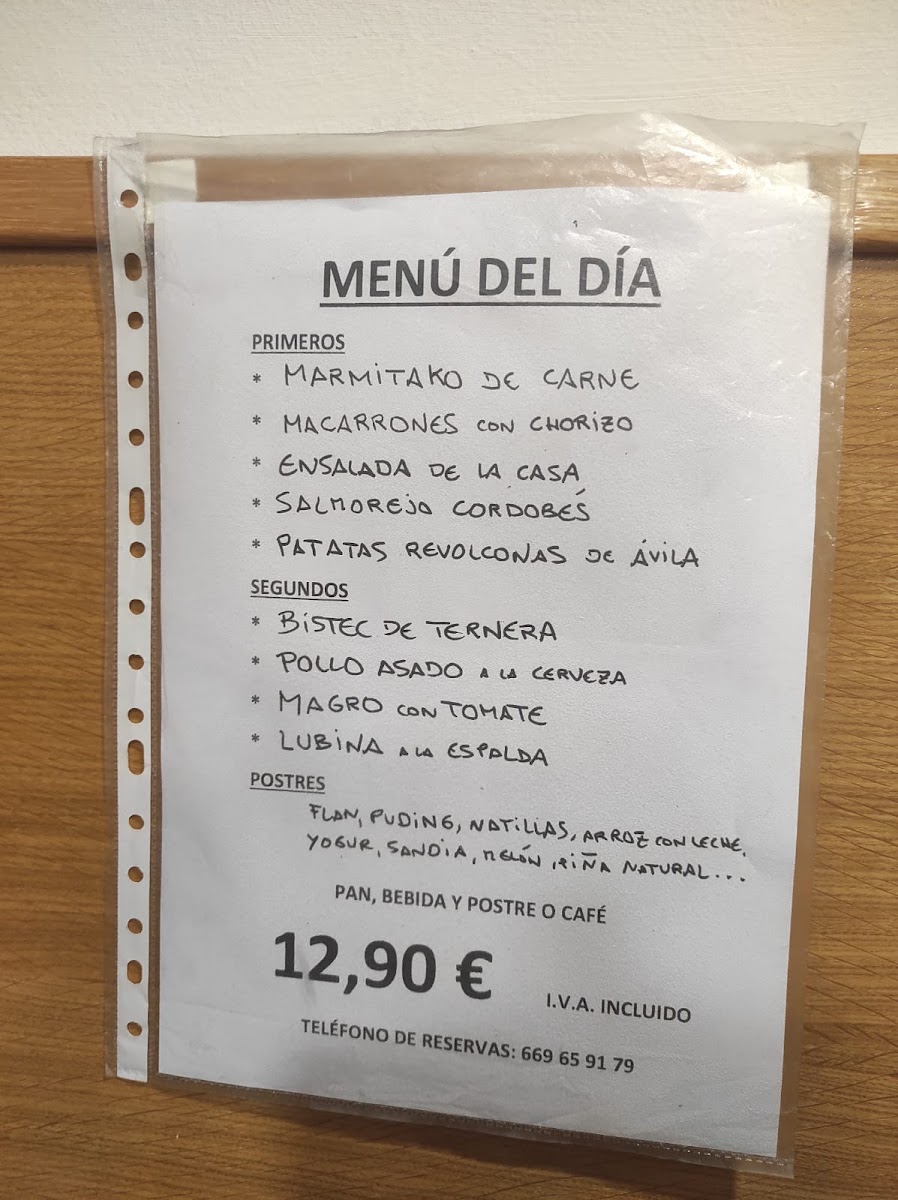 MENÚ DEL DÍA
PRIMEROS
* MARMITAKO DE CARNE
* MACARRONES CON CHORIZO
* ENSALADA DE LA CASA
* SALMOREJO CORDOBÉS
* PATATAS REVOLCONAS DE ÁVILA
SEGUNDOS
* BISTEC DE TERNERA
* POLLO ASADO A LA CERVEZA
* MAGRO CON TOMATE
* LUBINA A LA ESPALDA
POSTRES
FLAN, PUDING, NATILLAS, ARROZ CON LECHE,
YOGUR, SANDIA, MELÓN, PIÑA NATURAL...
PAN, BEBIDA Y POSTRE O CAFÉ
12,90 € I.V.A. INCLUIDO
TELÉFONO DE RESERVAS: 669 65 91 79